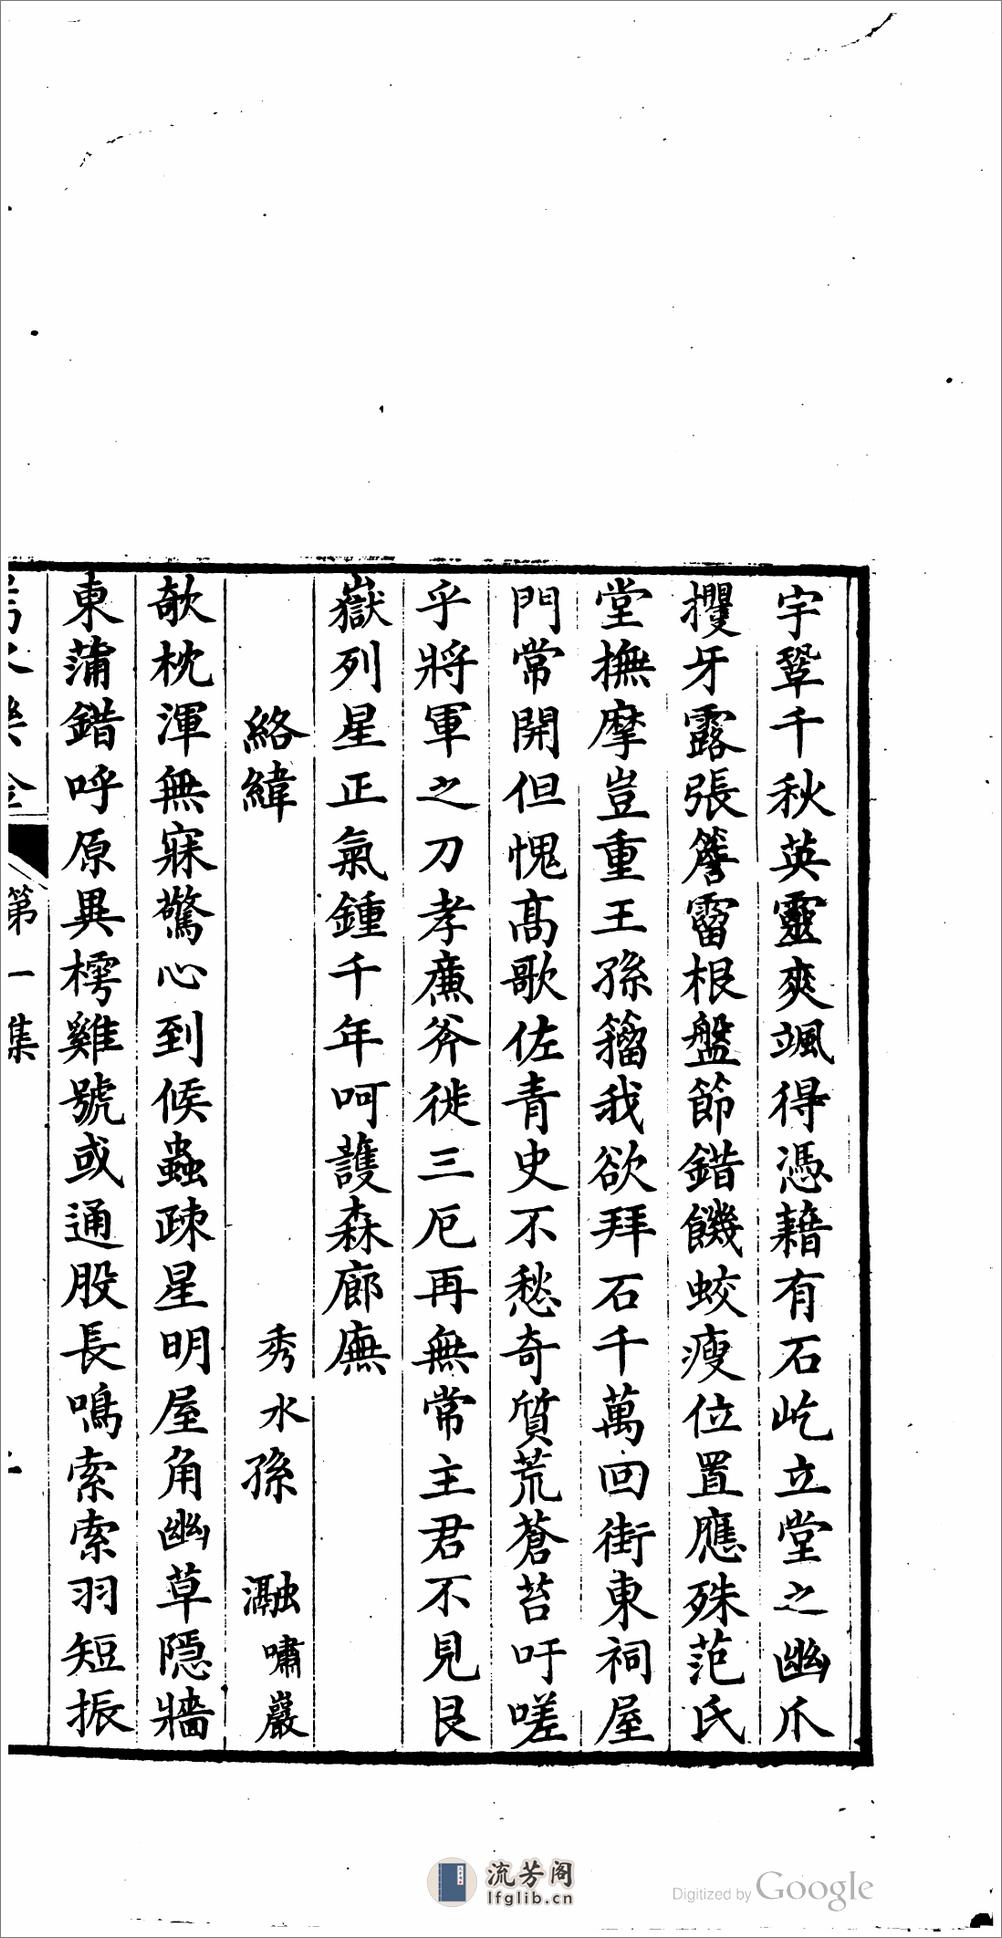 宇鞏千秋英靈爽颯得憑藉有石屹立堂之幽爪
攫牙露張簷霤根盤節錯饑蛟瘦位置應殊范氏
堂撫摩豈重王孫籀我欲拜石千萬回街東祠屋
門常開但愧高歌佐青史不愁奇質荒蒼苔吁嗟
乎將軍之刀孝廉斧徙三厄再無常主君不見艮
嶽列星正氣鍾千年呵護森廊廡
絡緯 秀水孫 瀜嘯巖
欹枕渾無寐驚心到候蟲疎星明屋角幽草隱牆
東蒲錯呼原異樗雞號或通股長鳴索索羽短振
第一集
流芳阁
lfglib.cn
Digitized by Google